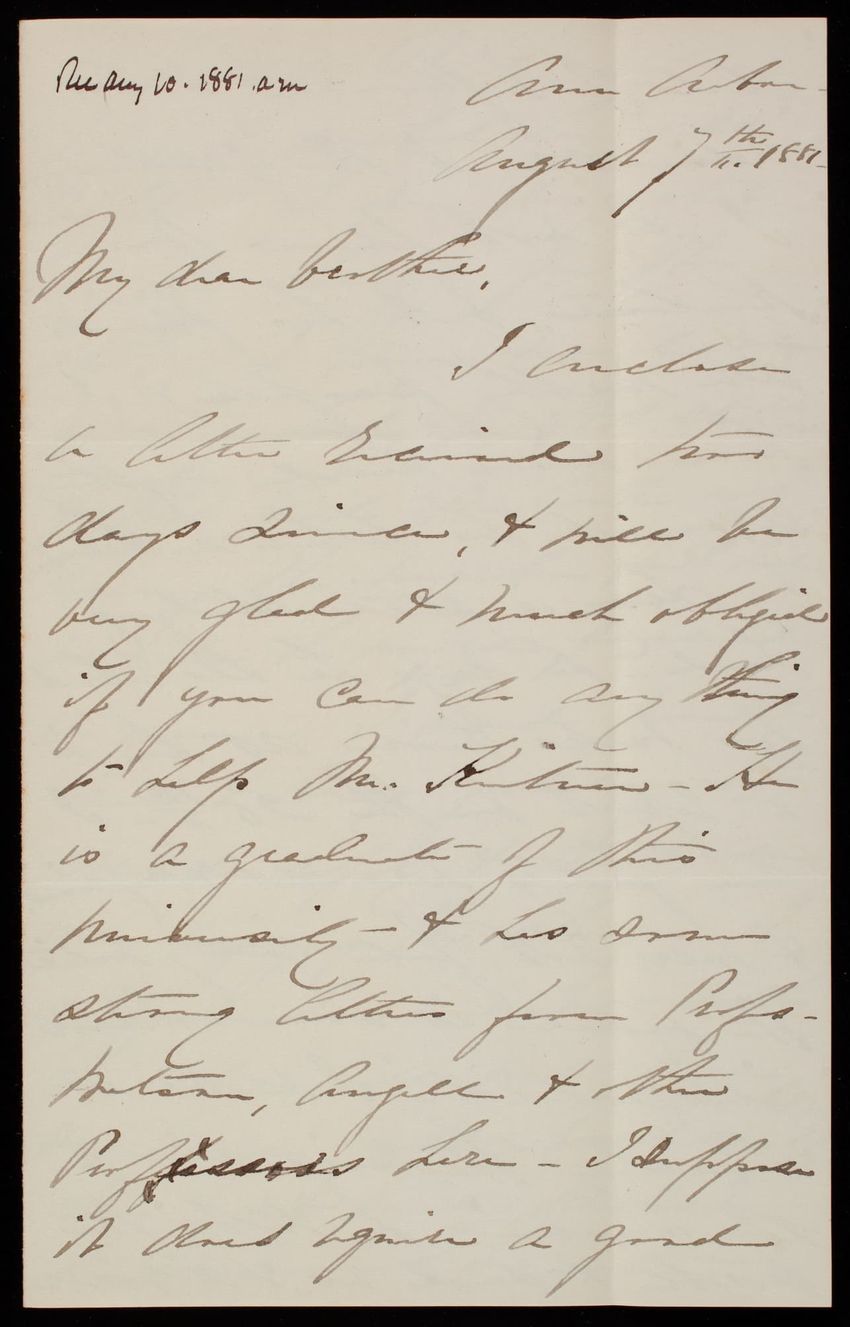 Rec Aug 10. 1881. a m
Ann Arbor -
August 7th. 1881 -
My dear brother,
I enclose
a letter received two
days since, & will be
very glad & much obliged
if you can do any thing
to help Mr. - He
is a graduate of this
university - & has some
strong letters from Profs -
Watson, Angell & other
Professors here - I suppose
it does require a good